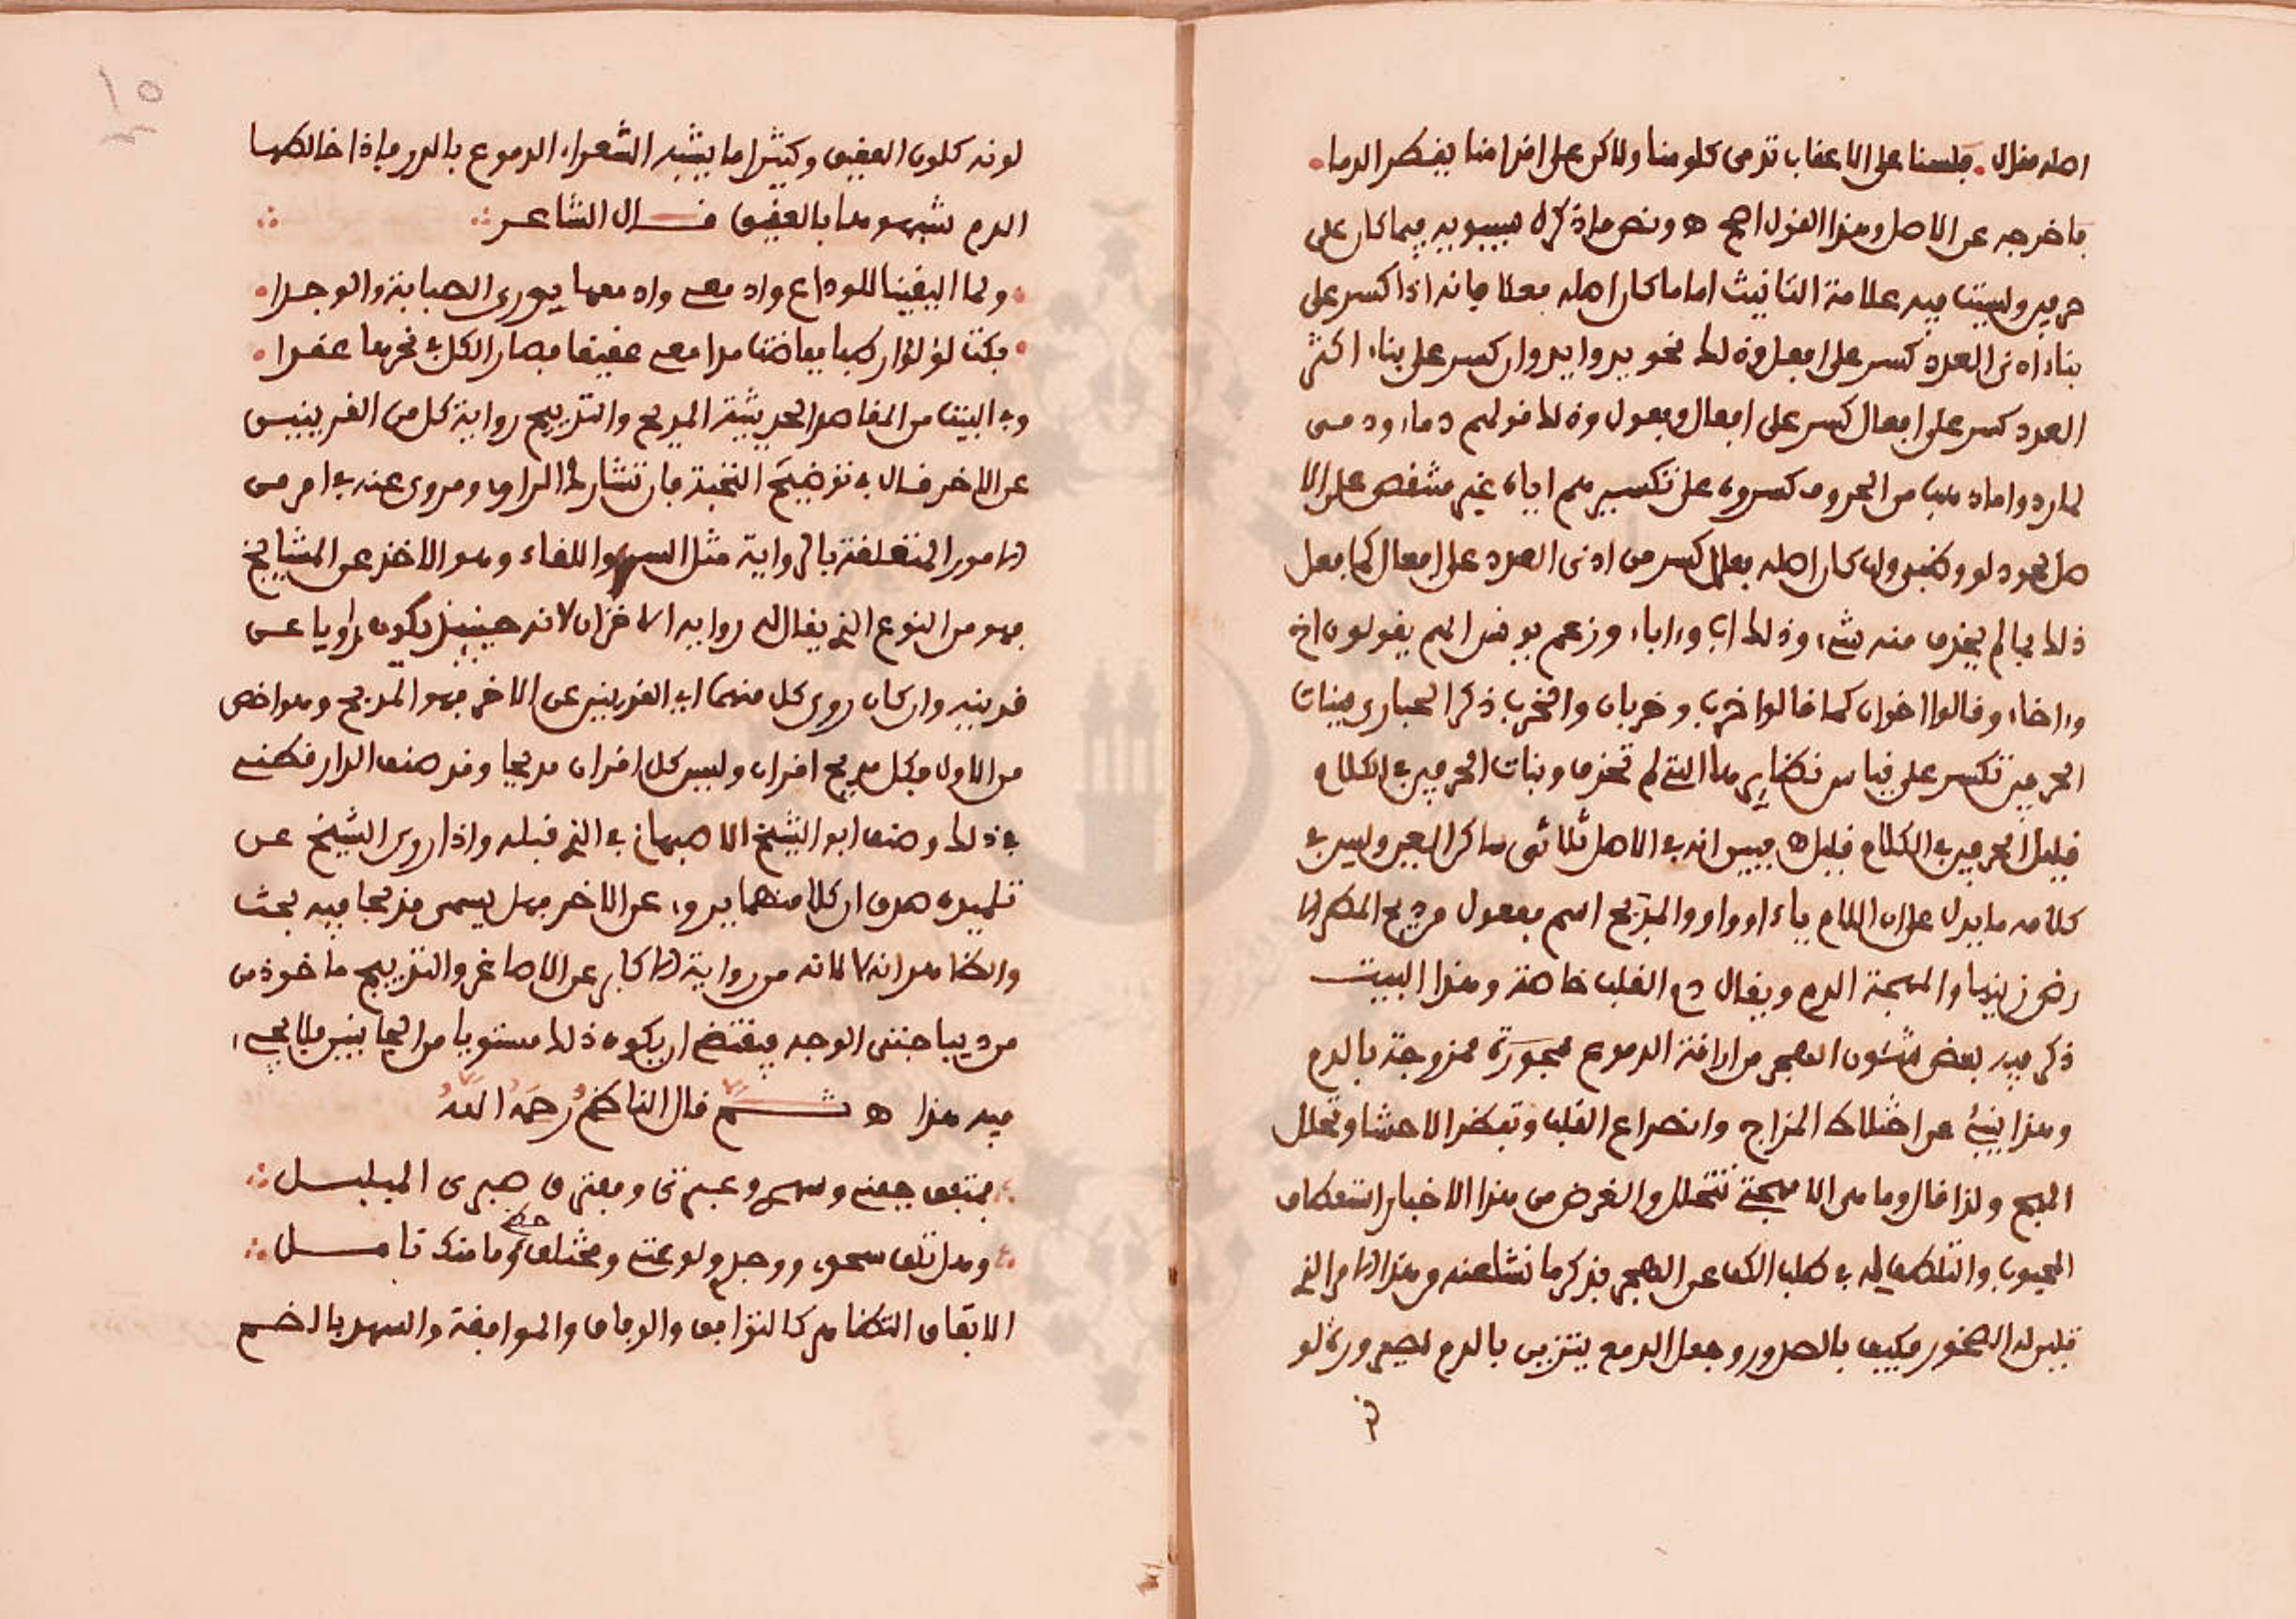 اصله فقال . فلسنا على الاعقاب تدمى كلومنا ولاكن على اقدامنا يقطر الدما .
فاخرجه عن الاصل وهذا القول اصح ه ونص ما ذكره سيبويه فيما كان على
حرفين وليست فيه علامة التانيث اما ما كان اصله فعلا فانه اذا كسر على
بناء ادنى العدد كسر على افعل وذلك نحو يد وايد وان كسر على بناء اكثر
العدد كسر على افعال كسر على افعال وفعول وذلك قولهم دماء ودمى
لما ردوا ما ذهب من الحروف كسروه على تكسيرهم اياه غير منتقص على الا
صل نحو دلو وظبي وان كان اصله فعلا كسر من ادنى العدد على افعال كما فعل
ذلك بما لم يحذف منه شيء وذلك اب واباء وزعم يونس انهم يقولون اخ
واخاء وقالوا اخوان كما قالوا خرب وخربان والخرب ذكر الحبارى فبنات
الحرفين تكسر على قياس نظائرها التي لم تحذف وبنات الحرفين في الكلام
قليل الحرفين في الكلام قليل ه فبين انه في الاصل ثلاثى ساكن العين وليس في
كلامه ما يدل على ان اللام ياء او واو والمدبج اسم مفعول من دبج المطر الا
رض زينها والمهجة الدم ويقال دم القلب خاصة وهذا البيت
ذكر فيه بعض شئون الهجر من اراقة الدموع ممزوجة بالدم
وهذا ينبئ عن اختلاط المزاج وانصداع القلب وتفطر الاحشا وتحلل
المهج ولذا قال وما هي الا مهجتي تتحلل والغرض من هذا الاخبار استعطاف
المحبوب والتلطف له في طلب الكف عن الهجر فذكر ما نشا عنه من هذا الامر الذي
تلين له الصخور فكيف بالصدور وجعل الدمع يتزين بالدم لصيرورة لو
نه
١٥
لونه كلون العقيق وكثيرا ما يشبه الشعراء الدموع بالدرر فاذا خالطها
الدم شبهوها بالعقيق قال الشاعر
ولما التقينا للوداع وادمعي وادمعها يورى الصبابة والوجدا
بكت لؤلؤا رطبا ففاضت مدامعي عقيقا فصار الكل في نحرها عقدا
وفي البيت من المقاصد الحديثية المدبج والتدبيج رواية كل من القرينين
عن الاخر قال في توضيح النخبة فان تشارك الراوي ومروى عنه في امر من
الامور المتعلقة بالرواية مثل السن واللقاء وهو الاخذ عن المشايخ
فهو من النوع الذي يقال له رواية الاقران لانه حينئذ يكون راويا عن
قرينه وان كان روى كل منهما اي القرينين عن الاخر فهو المدبج وهو اخص
من الاول فكل مدبج اقران وليس كل اقران مدبجا وقد صنف الدارقطني
في ذلك وصنف ابو الشيخ الاصبهاني في الذي قبله واذا روى الشيخ عن
تلميذه صدق ان كلا منهما يروي عن الاخر فهل يسمى مدبجا فيه بحث
والظاهر انه لا لانه من رواية الاكابر عن الاصاغر والتدبيج ماخوذ من
من ديباجتى الوجه فيقتضي ان يكون ذلك مستويا من الجانبين فلا يجيء
فيه هذا ه ثم قال الناظم رحمه الله
بمتفق جفني وسهدي وعبرتى ومفترق صبرى المبلبل
ومؤتلف شجوي ووجدي ولوعتي ومختلف حظي وما منك تامل
الاتفاق التظاهر كالتوافق والوفاق والموافقة والسهد بالضم